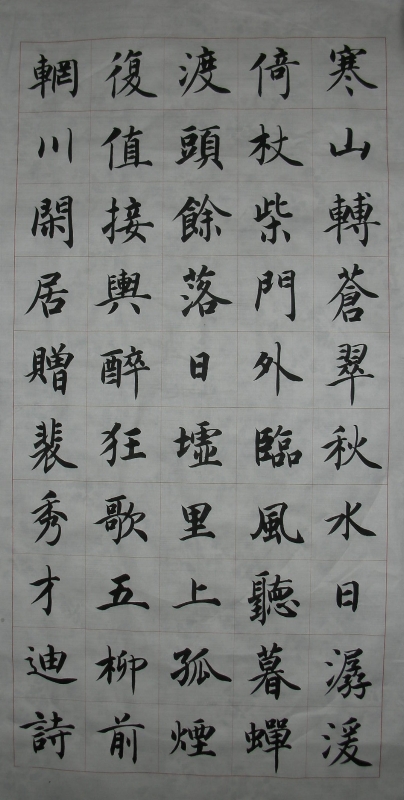 寒山轉蒼翠秋水日潺湲
倚杖柴門外臨風聽暮蟬
渡頭餘落日墟里上孤煙
復值接輿醉狂歌五柳前
輞川閑居贈裴秀才迪詩